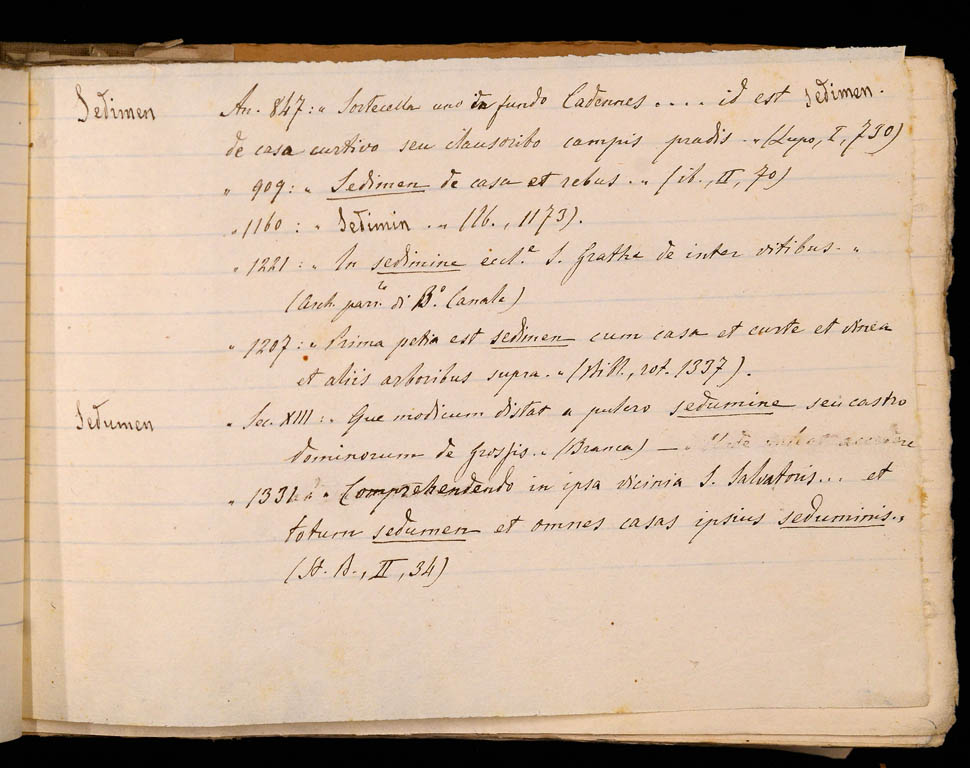 Sedimen An. 847: „ Sortecella una in fundo Cadennes .... id est sedimen.
de casa curtivo seu clausoribo campis pradis „ (Lupo, I, 790)
„ 909: „ Sedimen de casa et rebus „ (ib., II, 70)
„ 1160: „ Sedimin „ (Ib., 1173).
„ 1221: „ In sedimine eccl.e S. Grathe de inter vitibus „
(Arch. parr.le di B.o Canale)
„ 1207: „ Prima petia est sedimen cum casa et curte et vinea
et aliis arboribus supra „ (Bibl., rot. 1337).
Sedumen „ Sec. XIII: „ Que modicum distat a putero sedumine seu castro
dominorum de Grossis „ (Branca) —
„ 1331 „ Comprehendendo in ipsa vicinia S. Salvatoris... et
totum sedumen et omnes casas ipsius seduminis „
(St. B., II, 34)